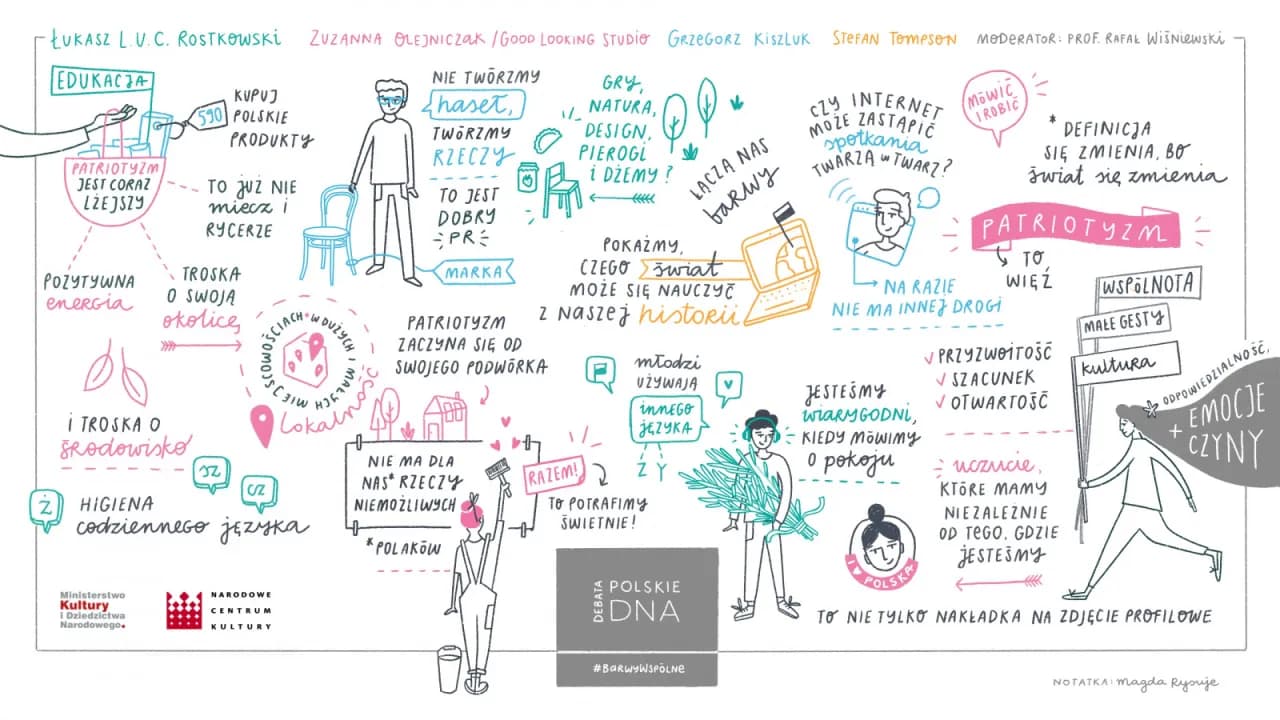 ŁUKASZ L.U.C. ROSTKOWSKI
ZUZANNA OLEJNICZAK / GOOD LOOKING STUDIO
GRZEGORZ KISZLUK
STEFAN TOMPSON
MODERATOR: PROF. RAFAŁ WIŚNIEWSKI
EDUKACJA
590
KUPUJ
POLSKIE
PRODUKTY
PATRIOTYZM
JEST CORAZ
LŻEJSZY
TO JUŻ NIE
miecz i
RYCERZE
POZYTYWNA
energia
TROSKA
O SWOJĄ
okolicę,
I TROSKA O
środowisko
W DUŻYCH I MAŁYCH MIEJSCOWOŚCIACH
Lokalność
Ż
SZ
CZ
HIGIENA
codziennego języka
NIE TWÓRZMY
haseł,
TWÓRZMY
RZECZY
TO JEST
DOBRY
PR
MARKA
GRY,
NATURA,
DESIGN,
PIEROGI
i DŻEMY?
ŁĄCZĄ NAS
barwy
POKAŻMY,
CZEGO świat
MOŻE SIĘ NAUCZYĆ
Z NASZEJ historii
PATRIOTYZM
ZACZYNA SIĘ OD
SWOJEGO PODWÓRKA
NIE MA DLA
NAS* RZECZY
NIEMOŻLIWYCH
*POLAKÓW
RAZEM!
TO POTRAFIMY
ŚWIETNIE!
młodzi
UŻYWAJĄ
innego
języka
Z Y
JESTEŚMY
wiarygodni,
KIEDY MÓWIMY
O pokoju
CZY INTERNET
MOŻE ZASTĄPIĆ
spotkania
TWARZĄ w TWARZ?
NA RAZIE
NIE MA INNEJ DROGI
MÓWIĆ
I ROBIĆ
* DEFINICJA
SIĘ ZMIENIA, BO
świat się zmienia
PATRIOTYZM
TO
WIĘŹ
WSPÓLNOTA
MAŁE GESTY
kultura
PRZYZWOITOŚĆ
SZACUNEK
OTWARTOŚĆ
ODPOWIEDZIALNOŚĆ,
EMOCJE
+ CZYNY
uczucie,
KTÓRE MAMY
NIEZALEŻNIE
OD TEGO, GDZIE
JESTEŚMY
I ♥ POLSKA
TO NIE TYLKO NAKŁADKA NA ZDJĘCIE PROFILOWE
Ministerstwo
Kultury
i Dziedzictwa
Narodowego.
NARODOWE
CENTRUM
KULTURY
DEBATA
POLSKIE
DNA
#BARWYWSPÓLNE
NOTATKA: Magda Rysuje